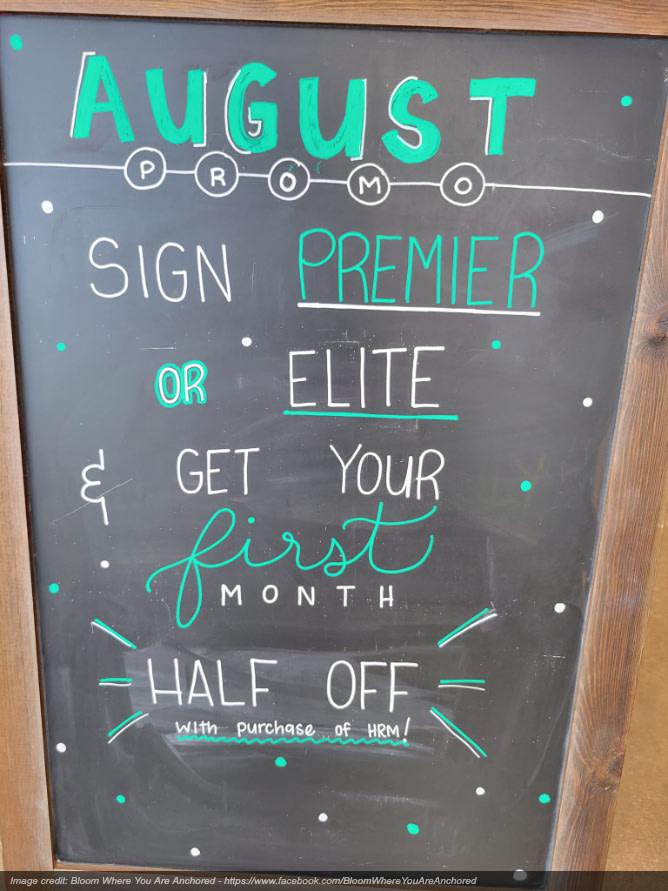 AUGUST
PROMO
SIGN PREMIER
OR ELITE
& GET YOUR
first
MONTH
HALF OFF
with purchase of HRM!
Image credit: Bloom Where You Are Anchored - https://www.facebook.com/BloomWhereYouAreAnchored